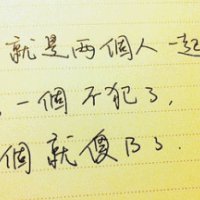 就是两個人一起
一個不犯了,
個就傻B了.